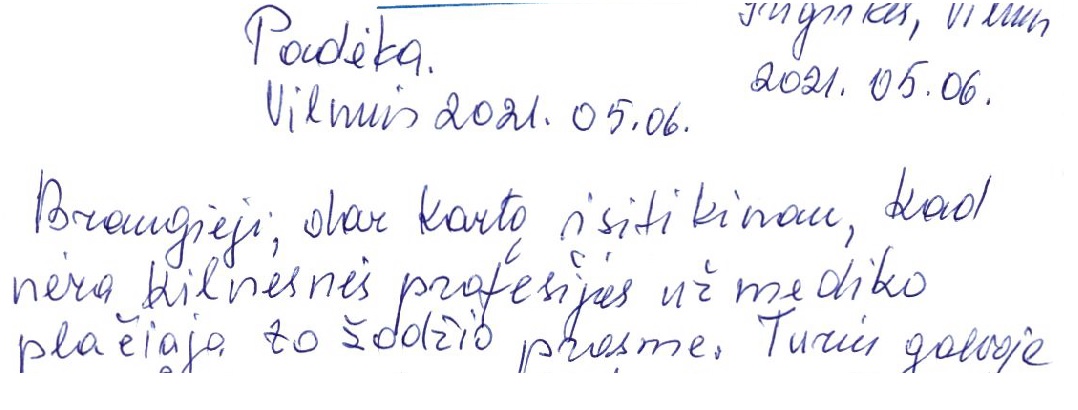 Padėka.
Vilnius
2021. 05.06.
Vilnius 2021. 05.06.
Brangieji, dar kartą įsitikinau, kad
nėra kilnesnės profesijos už mediko
plačiąja to žodžio prasme. Turiu galvoje